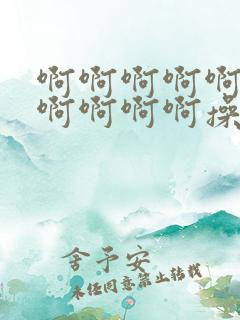 啊啊啊啊啊
啊啊啊啊操
舍予安
未经同意禁止转载